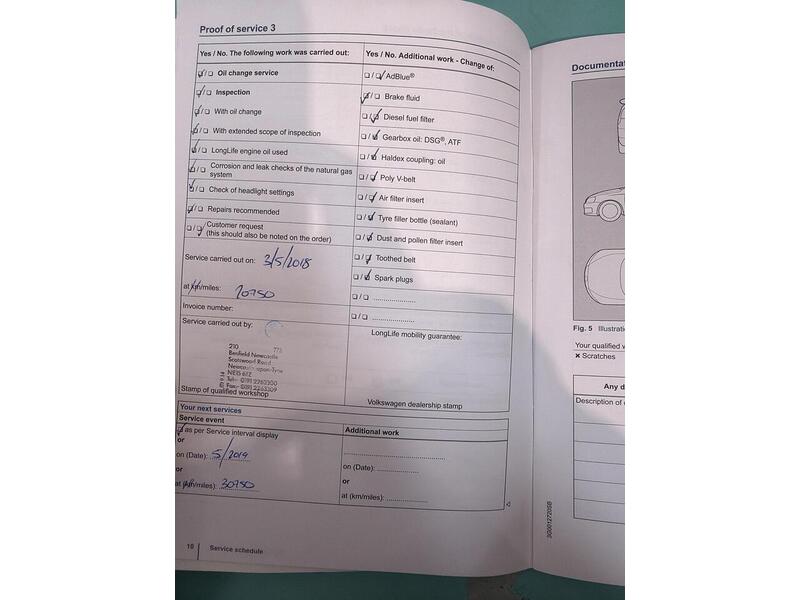 Proof of service 3
Yes / No. The following work was carried out:
☑/☐ Oil change service
☑/☐ Inspection
☑/☐ With oil change
☑/☐ With extended scope of inspection
☑/☐ LongLife engine oil used
☑/☐ Corrosion and leak checks of the natural gas
system
☑/☐ Check of headlight settings
☑/☐ Repairs recommended
☐/☑ Customer request
(this should also be noted on the order)
Service carried out on: 3/5/2018
at km/miles: 20750
Invoice number:
Service carried out by:
210
Benfield Newcastle
Scotswood Road
NE15 6TZ
Tel: 0191 2260300
Fax: 0191 2263309
Stamp of qualified workshop
Yes / No. Additional work - Change of:
☐/☑ AdBlue®
☑/☐ Brake fluid
☐/☑ Diesel fuel filter
☐/☑ Gearbox oil: DSG®, ATF
☐/☑ Haldex coupling: oil
☐/☑ Poly V-belt
☐/☑ Air filter insert
☐/☑ Tyre filler bottle (sealant)
☐/☑ Dust and pollen filter insert
☐/☑ Toothed belt
☐/☑ Spark plugs
☐/☐ ....................
☐/☐ ....................
LongLife mobility guarantee:
Volkswagen dealership stamp
Your next services
Service event
☑ as per Service interval display
or
on (Date): 5/2019
or
at (km/miles): 30750
Additional work
on (Date): ....................
or
at (km/miles): ....................
10
Service schedule
3G0012720SB
Documentat
Fig. 5 Illustrati
Your qualified w
× Scratches
Any d
Description of